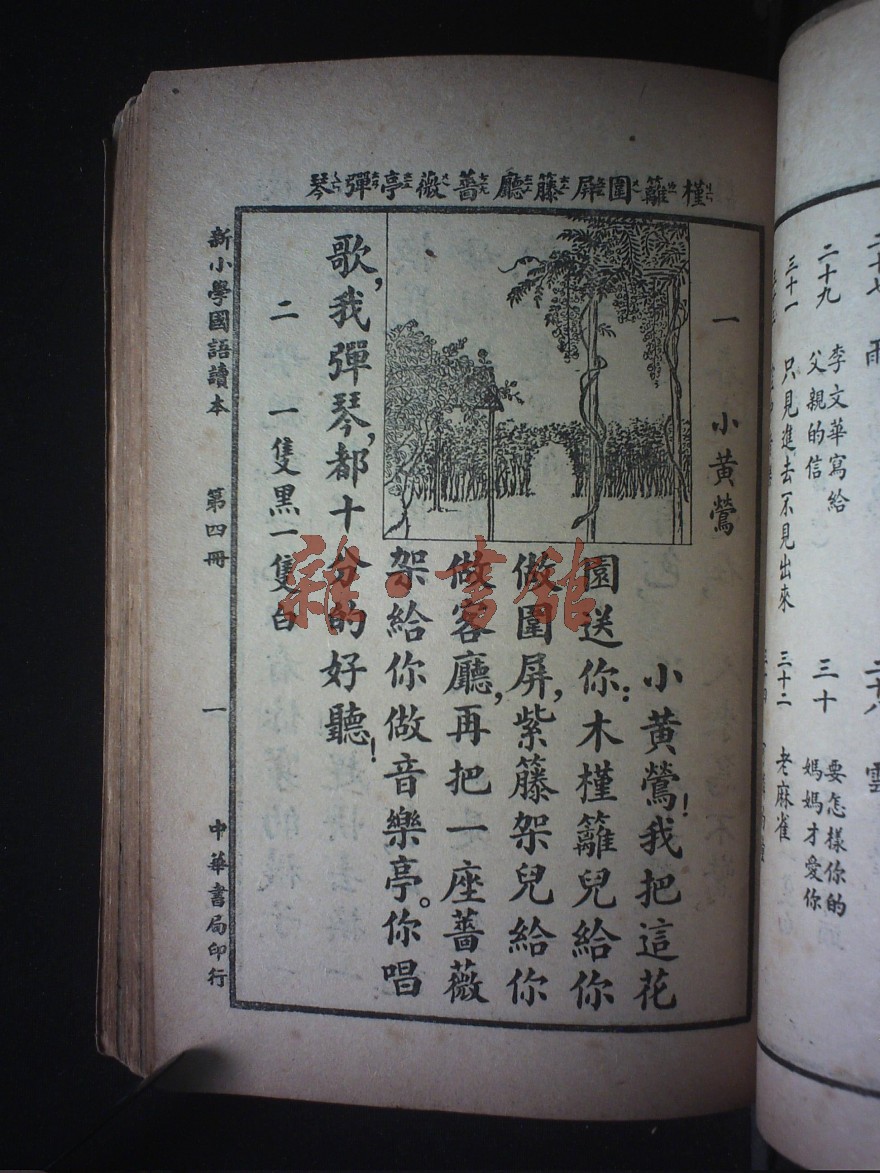 槿籬圍屏籐廳薔薇亭彈琴
一　小黃鶯
小黃鶯!我把這花
園送你:木槿籬兒給你
做圍屏,紫籐架兒給你
做客廳,再把一座薔薇
架給你做音樂亭。你唱
歌,我彈琴,都十分的好聽!
二　一隻黑一隻白
新小學國語讀本　第四冊　一　中華書局印行
雜·書館
二十七　雨
二十八　雲
二十九　李文華寫給父親的信
三十　要怎樣你的媽媽才愛你
三十一　只見進去不見出來
三十二　老麻雀